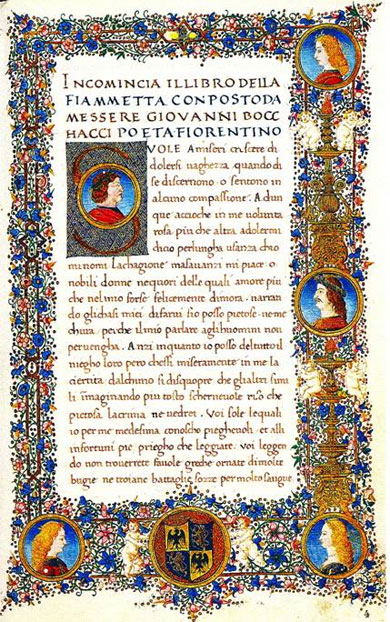 INCOMINCIA IL LIBRO DELLA
FIAMMETTA CONPOSTO DA
MESSERE GIOVANNI BOCC
HACCI POETA FIORENTINO
SVOLE A miseri crescere di
dolersi vaghezza quando di
se discernono o sentono in
alcuno compassione. Adun
que accioche in me volunta
rosa piu che altra a dolermi
di cio per lunga usanza
mi non la chagione ma avanzi mi piace o
nobili donne ne quori delle quali amore piu
che nel mio forse felicemente dimora narran
do gli chasi miei di farvi sio posso pietose ne me
chura perche il mio parlare agli huomini non
pervengha. Anzi inquanto io posso del tutto il
niegho loro pero che si miseramente in me la
cierrita dalchuno si disquopre che gli altri simi
li imaginando piu tosto schernevole riso che
pietosa lacrima ne vedrei. Voi sole le quali
io per me medesima conoscho pieghevoli et alli
infortuni pie priegho che leggiate. voi leggen
do non troverrete favole greche ornate di molte
bugie ne troiane battaglie sozze per molto sangue
4